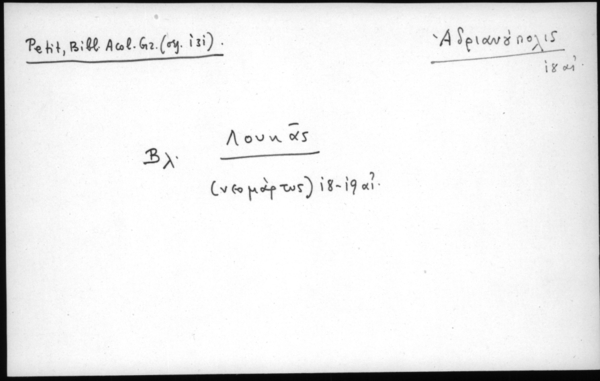 Petit, Bibl. Acol. Gr. (σγ. 131).
Ἀδριανούπολις
18 αἰ.
Βλ. Λουκᾶς
(νεομάρτυς) 18-19 αἰ.